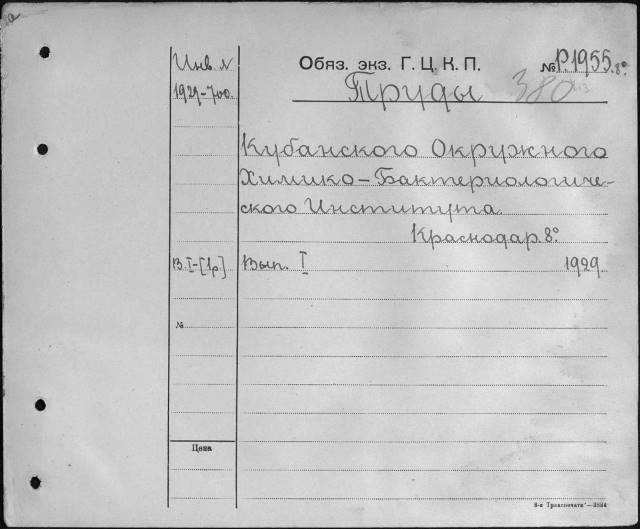 Инв. №
1929-700.
Обяз. экз. Г. Ц. К. П.
№ Р.1955. 8°.
Труды 380
Кубанского Окружного
Химико-Бактериологиче-
ского Института.
Краснодар. 8°.
В. I-[1р] Вып. I 1929.
№
Цена